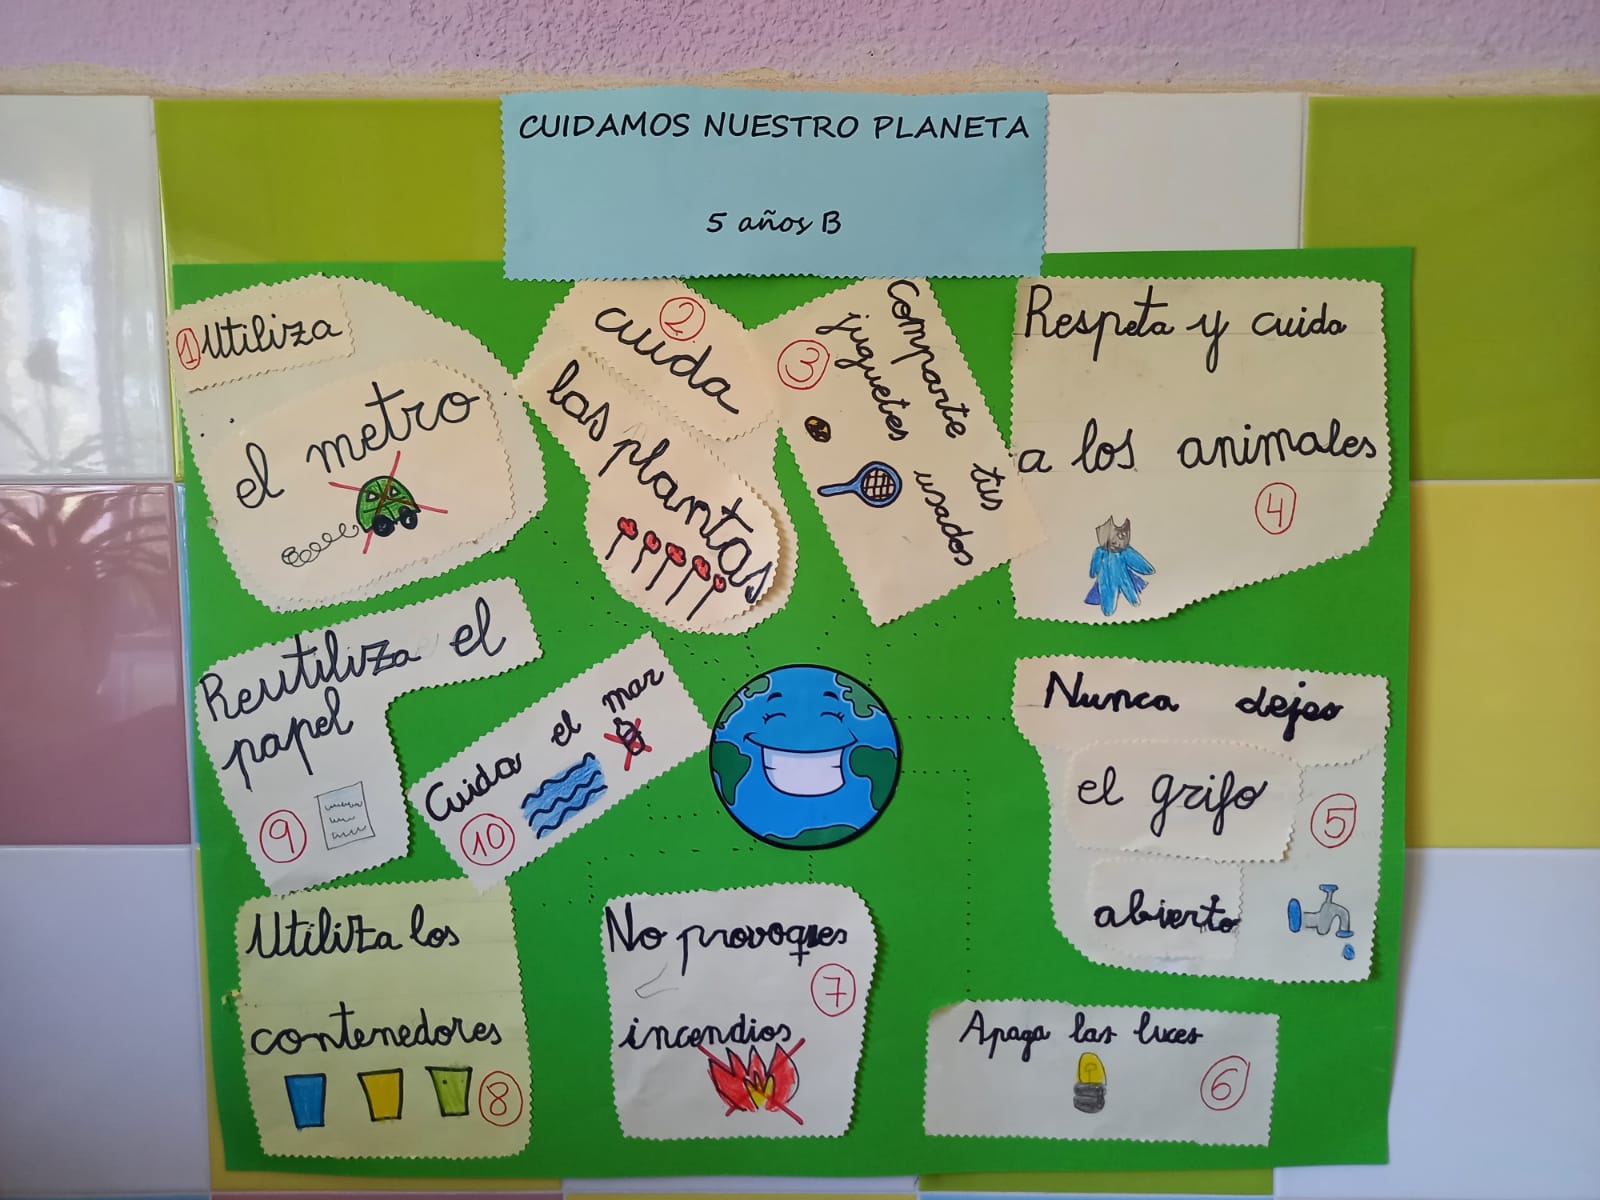 CUIDAMOS NUESTRO PLANETA
5 años B
1 Utiliza
el metro
2
cuida
las plantas
3
Comparte tus
juguetes usados
Respeta y cuida
a los animales
4
Nunca dejes
el grifo
5
abierto
Apaga las luces
6
No provoques
7
incendios
Utiliza los
contenedores
8
Reutiliza el
papel
9
Cuida el mar
10